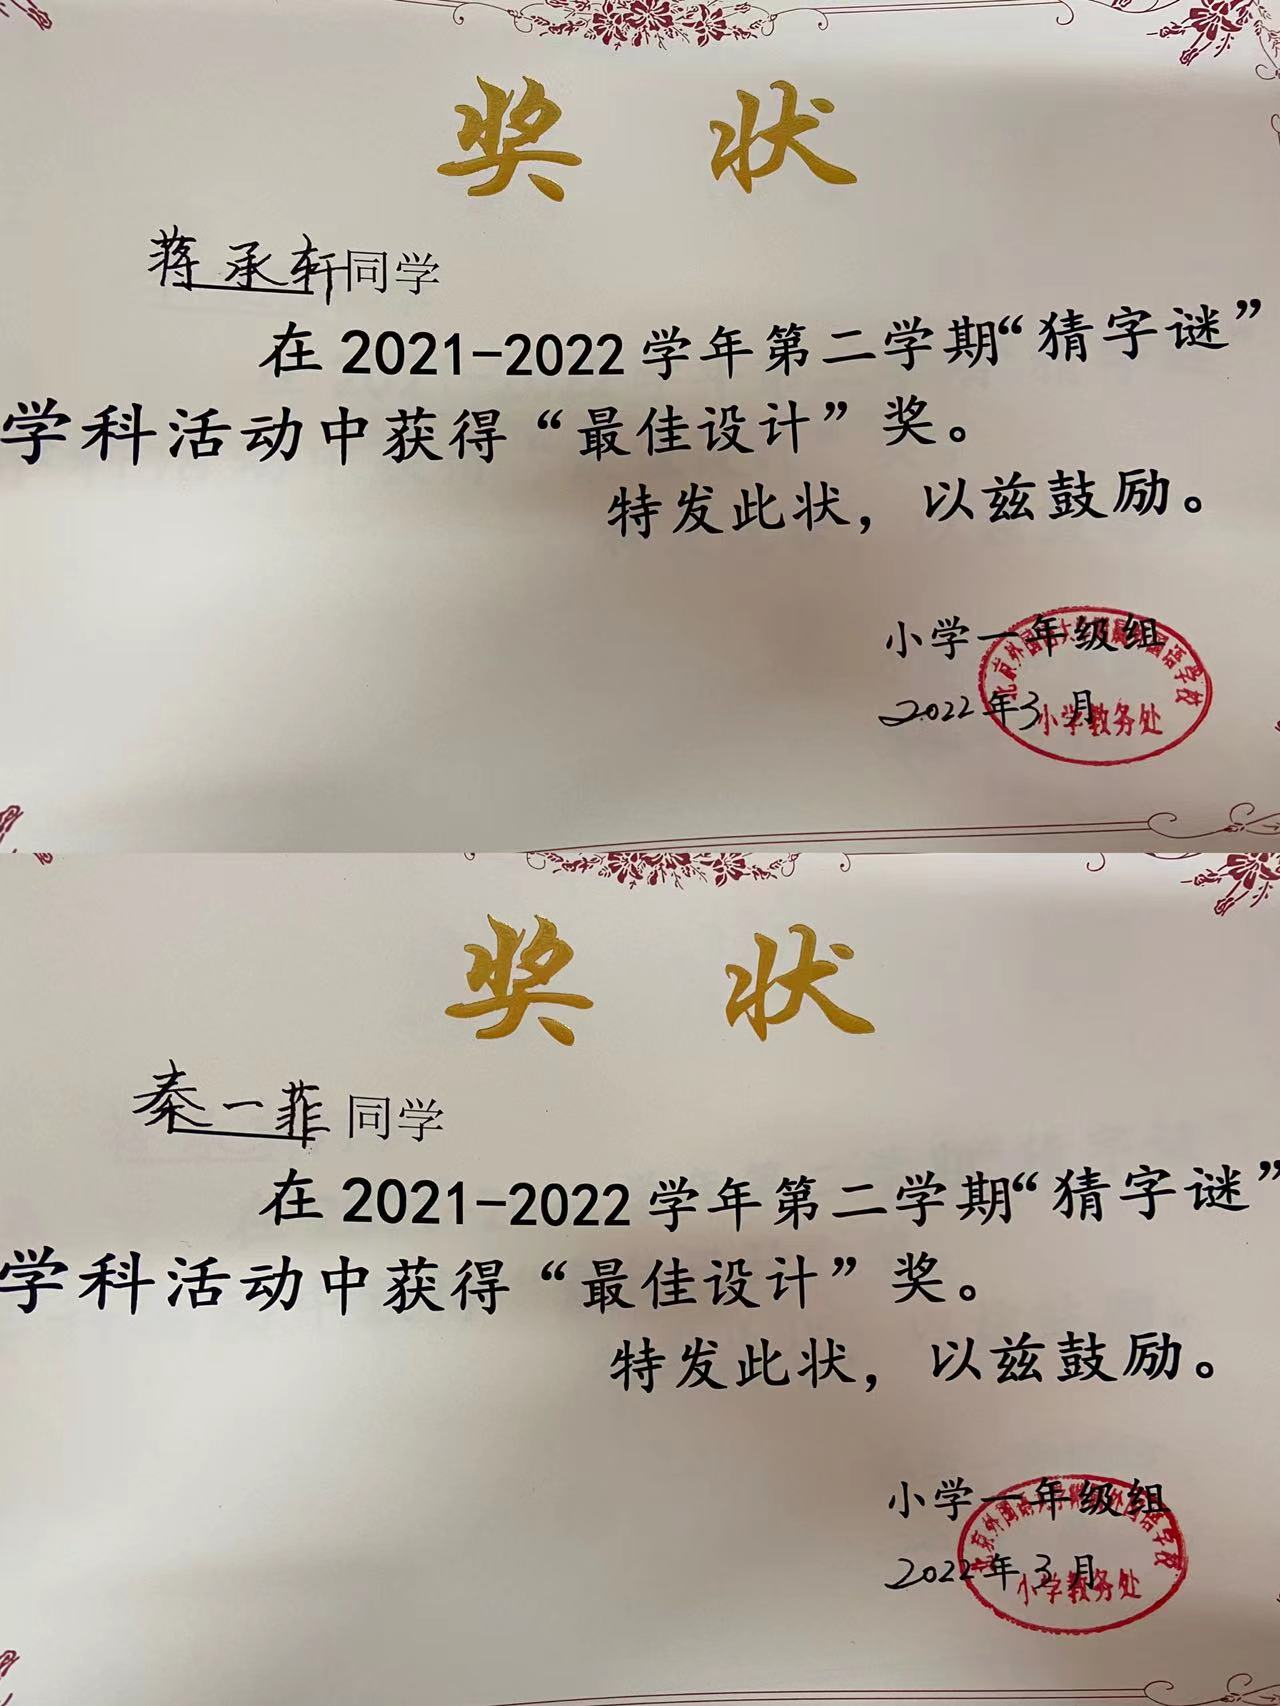 奖 状
蒋承轩同学
在2021-2022学年第二学期“猜字谜”
学科活动中获得“最佳设计”奖。
特发此状，以兹鼓励。
小学一年级组
2022年3月
北京外国语大学附属外国语学校
小学教务处
奖 状
秦一菲同学
在2021-2022学年第二学期“猜字谜”
学科活动中获得“最佳设计”奖。
特发此状，以兹鼓励。
小学一年级组
2022年3月
北京外国语大学附属外国语学校
小学教务处